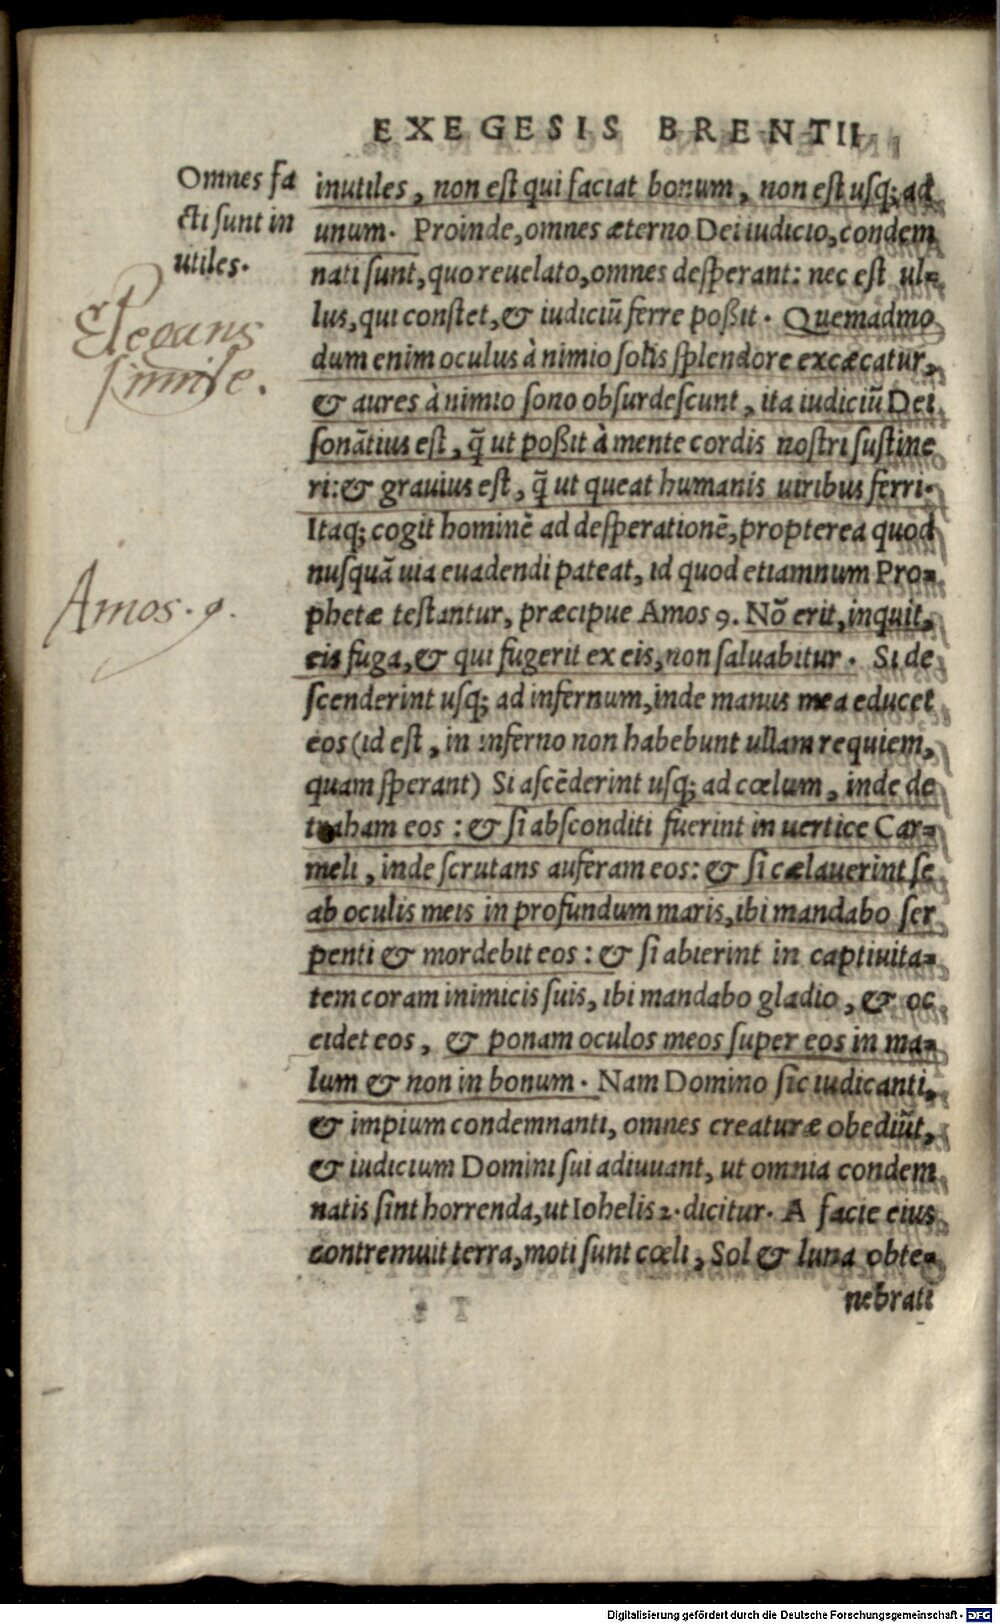 EXEGESIS BRENTII
Omnes fa
cti sunt in
utiles.
Elegans
simile.
Amos. 9.
inutiles, non est qui faciat bonum, non est usq; ad
unum. Proinde, omnes æterno Dei iudicio, condem
nati sunt, quo reuelato, omnes desperant: nec est ul=
lus, qui constet, & iudiciũ ferre poßit. Quemadmo
dum enim oculus à nimio solis splendore excæcatur,
& aures à nimio sono obsurdescunt, ita iudiciũ Dei
sonãtius est, q̃ ut poßit à mente cordis nostri sustine
ri: & grauius est, q̃ ut queat humanis uiribus ferri.
Itaq; cogit hominẽ ad desperationẽ, propterea quod
nusquã uia euadendi pateat, id quod etiamnum Pro=
phetæ testantur, præcipue Amos 9. Nõ erit, inquit,
eis fuga, & qui fugerit ex eis, non saluabitur. Si de
scenderint usq; ad infernum, inde manus mea educet
eos (id est, in inferno non habebunt ullam requiem,
quam sperant) Si ascẽderint usq; ad cœlum, inde de
traham eos: & si absconditi fuerint in uertice Car=
meli, inde scrutans auferam eos: & si cælauerint se
ab oculis meis in profundum maris, ibi mandabo ser
penti & mordebit eos: & si abierint in captiuita=
tem coram inimicis suis, ibi mandabo gladio, & oc
cidet eos, & ponam oculos meos super eos in ma=
lum & non in bonum. Nam Domino sic iudicanti,
& impium condemnanti, omnes creaturæ obediũt,
& iudicium Domini sui adiuuant, ut omnia condem
natis sint horrenda, ut Iohelis 2. dicitur. A facie eius
contremuit terra, moti sunt cœli, Sol & luna obte=
nebrati
Digitalisierung gefördert durch die Deutsche Forschungsgemeinschaft - DFG